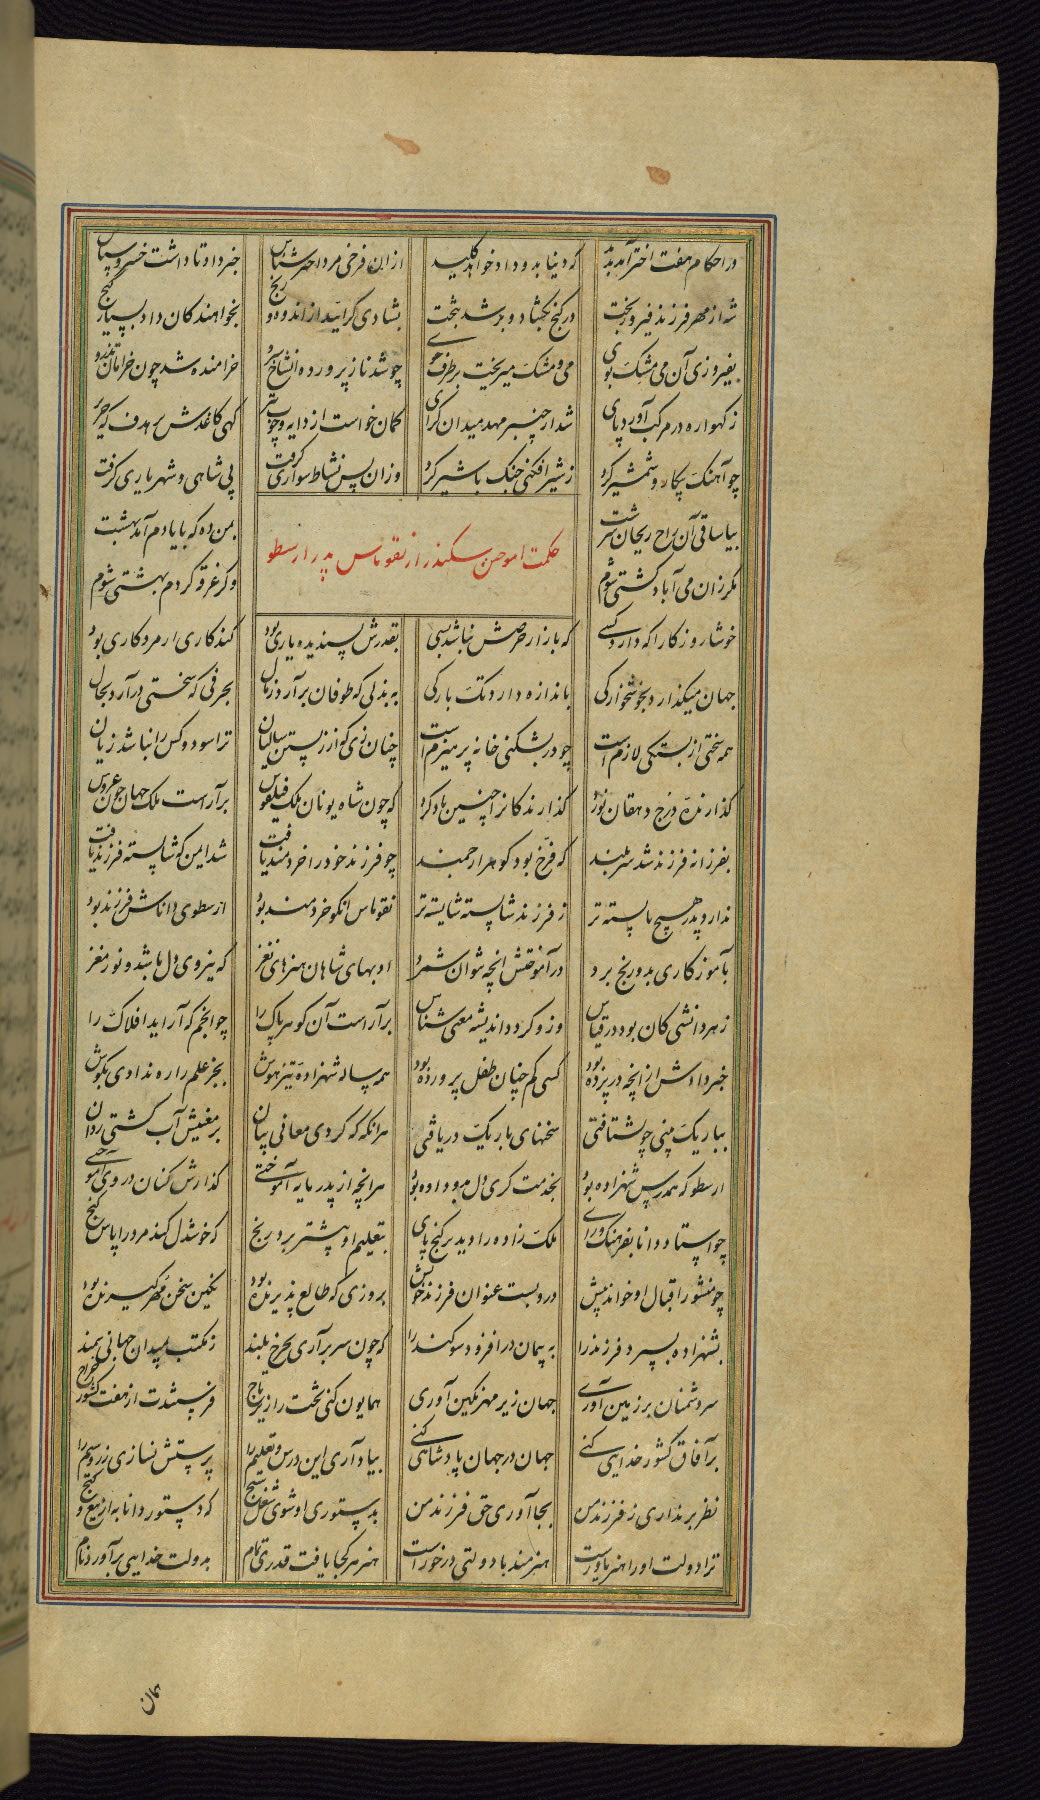 در احکام هفت اختر آمد پدید که دنیا بدو داد خواهد کلید از ان فرخی مرد اخترشناس خبر داد تا داشت خسرو سپاس
شه از مهر فرزند فیروز بخت در گنج بگشاد و بر شد بتخت بشادی گرایید از اندوه و رنج بخواهندگان داد بسیار گنج
بفیروزی آن می مشک بوی می و مشک میریخت بر طرف جوی چو شد ناز پرورده آنشاخ سرو خرامنده شد چون خرامان تذرو
ز گهواره در مرکب آورد پای شد از چنبر مهد میدان گرای کمان خواست از دایه و چوبه تیر گهی کاغذش بر هدف گه حریر
چو آهنگ پیکار و شمشیر کرد ز شیر افکنی جنگ با شیر کرد وزان پس نشاط سواری گرفت پی شاهی و شهریاری گرفت
بیا ساقی آن راح ریحان سرشت بمن ده که با یادم آمد بهشت
مگر زان می آباد کشتی شوم وگر غرق گردم بهشتی شوم
حکمت اموختن سکندر از نقوماس پدر ارسطو
خوشا روزگارا که دارد کسی که بازار حرصش نباشد بسی بقدرش پسندیده یاری بود کند کاری ار مرد کاری بود
جهان میگذارد بخوشخوارگی باندازه دارد تک بارگی به بذلی که طوفان برآرد ز مال بحرفی که سختی درآرد بحال
همه سختی از بستگی لازم است چو در بشکنی خانه پر هیزم است چنان زی کز ان زیستن سالیان ترا سود و کس را نباشد زیان
گذارنده درج دهقان نورد گذارندگان را چنین یاد کرد که چون شاه یونان ملک فیلقوس برآراست ملک جهان چون عروس
بفرزانه فرزند شد سربلند که فرخ بود گوهر ارجمند چو فرزند خود را خردمند یافت شد ایمن که شایسته فرزند یافت
ندارد پدر هیچ بایسته تر ز فرزند شایسته شایسته تر نقوماس انکو خردمند بود ارسطوی داناش فرزند بود
بآموزگاری بدو رنج برد در آموختش انچه نتوان شمرد ادبهای شاهان هنرهای نغز که نیروی دل باشد و نور مغز
ز هر دانشی کان بود در قیاس وزو گردد اندیشه معنی شناس برآراست آن گوهر پاک را چو انجم که آراید افلاک را
خبر دادش از انچه در پرده بود کسی کم چنان طفل پرورده بود همه ساله شهزاده تیزهوش بجز علم را ره ندادی بگوش
بباریک بینی چو بشتافتی سخنهای باریک دریافتی هرانکه که کردی معانی بیان بر مغنیش آب کشتی روان
ارسطو که همدرس شهزاده بود بخدمت گری دل بدو داده بود هر انچه از پدر مایه آموختی گذارش کنان در وی آموختی
چو استاد دانا بفرهنگ و رای ملک زاده را دید بر گنج پای بتعلیم او بیشتر برد رنج که خوشدل کند مرد را پاس گنج
چو منشور اقبال او خواند پیش درو بست عنوان فرزند خویش بروزی که طالع پذیرنده بود نگین سخن مهر گیرنده بود
بشهزاده بسپرد فرزند را به پیمان در افزود سوگند را که چون سر برآری بچرخ بلند ز مکتب بمیدان جهانی سمند
سر دشمنان بر زمین آوری جهان زیر مهر نگین آوری همایون کنی تخت را زیر تاج فرستندت از هفت کشور خراج
بر آفاق کشور خدایی کنی جهان در جهان پادشاهی کنی بیاد آری این درس و تعلیم را پرستش نسازی زر و سیم را
نظر بر نداری ز فرزند من بجا آوری حق فرزند من بدستوری او شوی شغل سنج که دستور دانا به از تیغ و گنج
ترا دولت او را هنر یاور است هنرمند با دولتی درخور است هنر هر کجا یافت قدری تمام بدولت خدایی برآورد نام